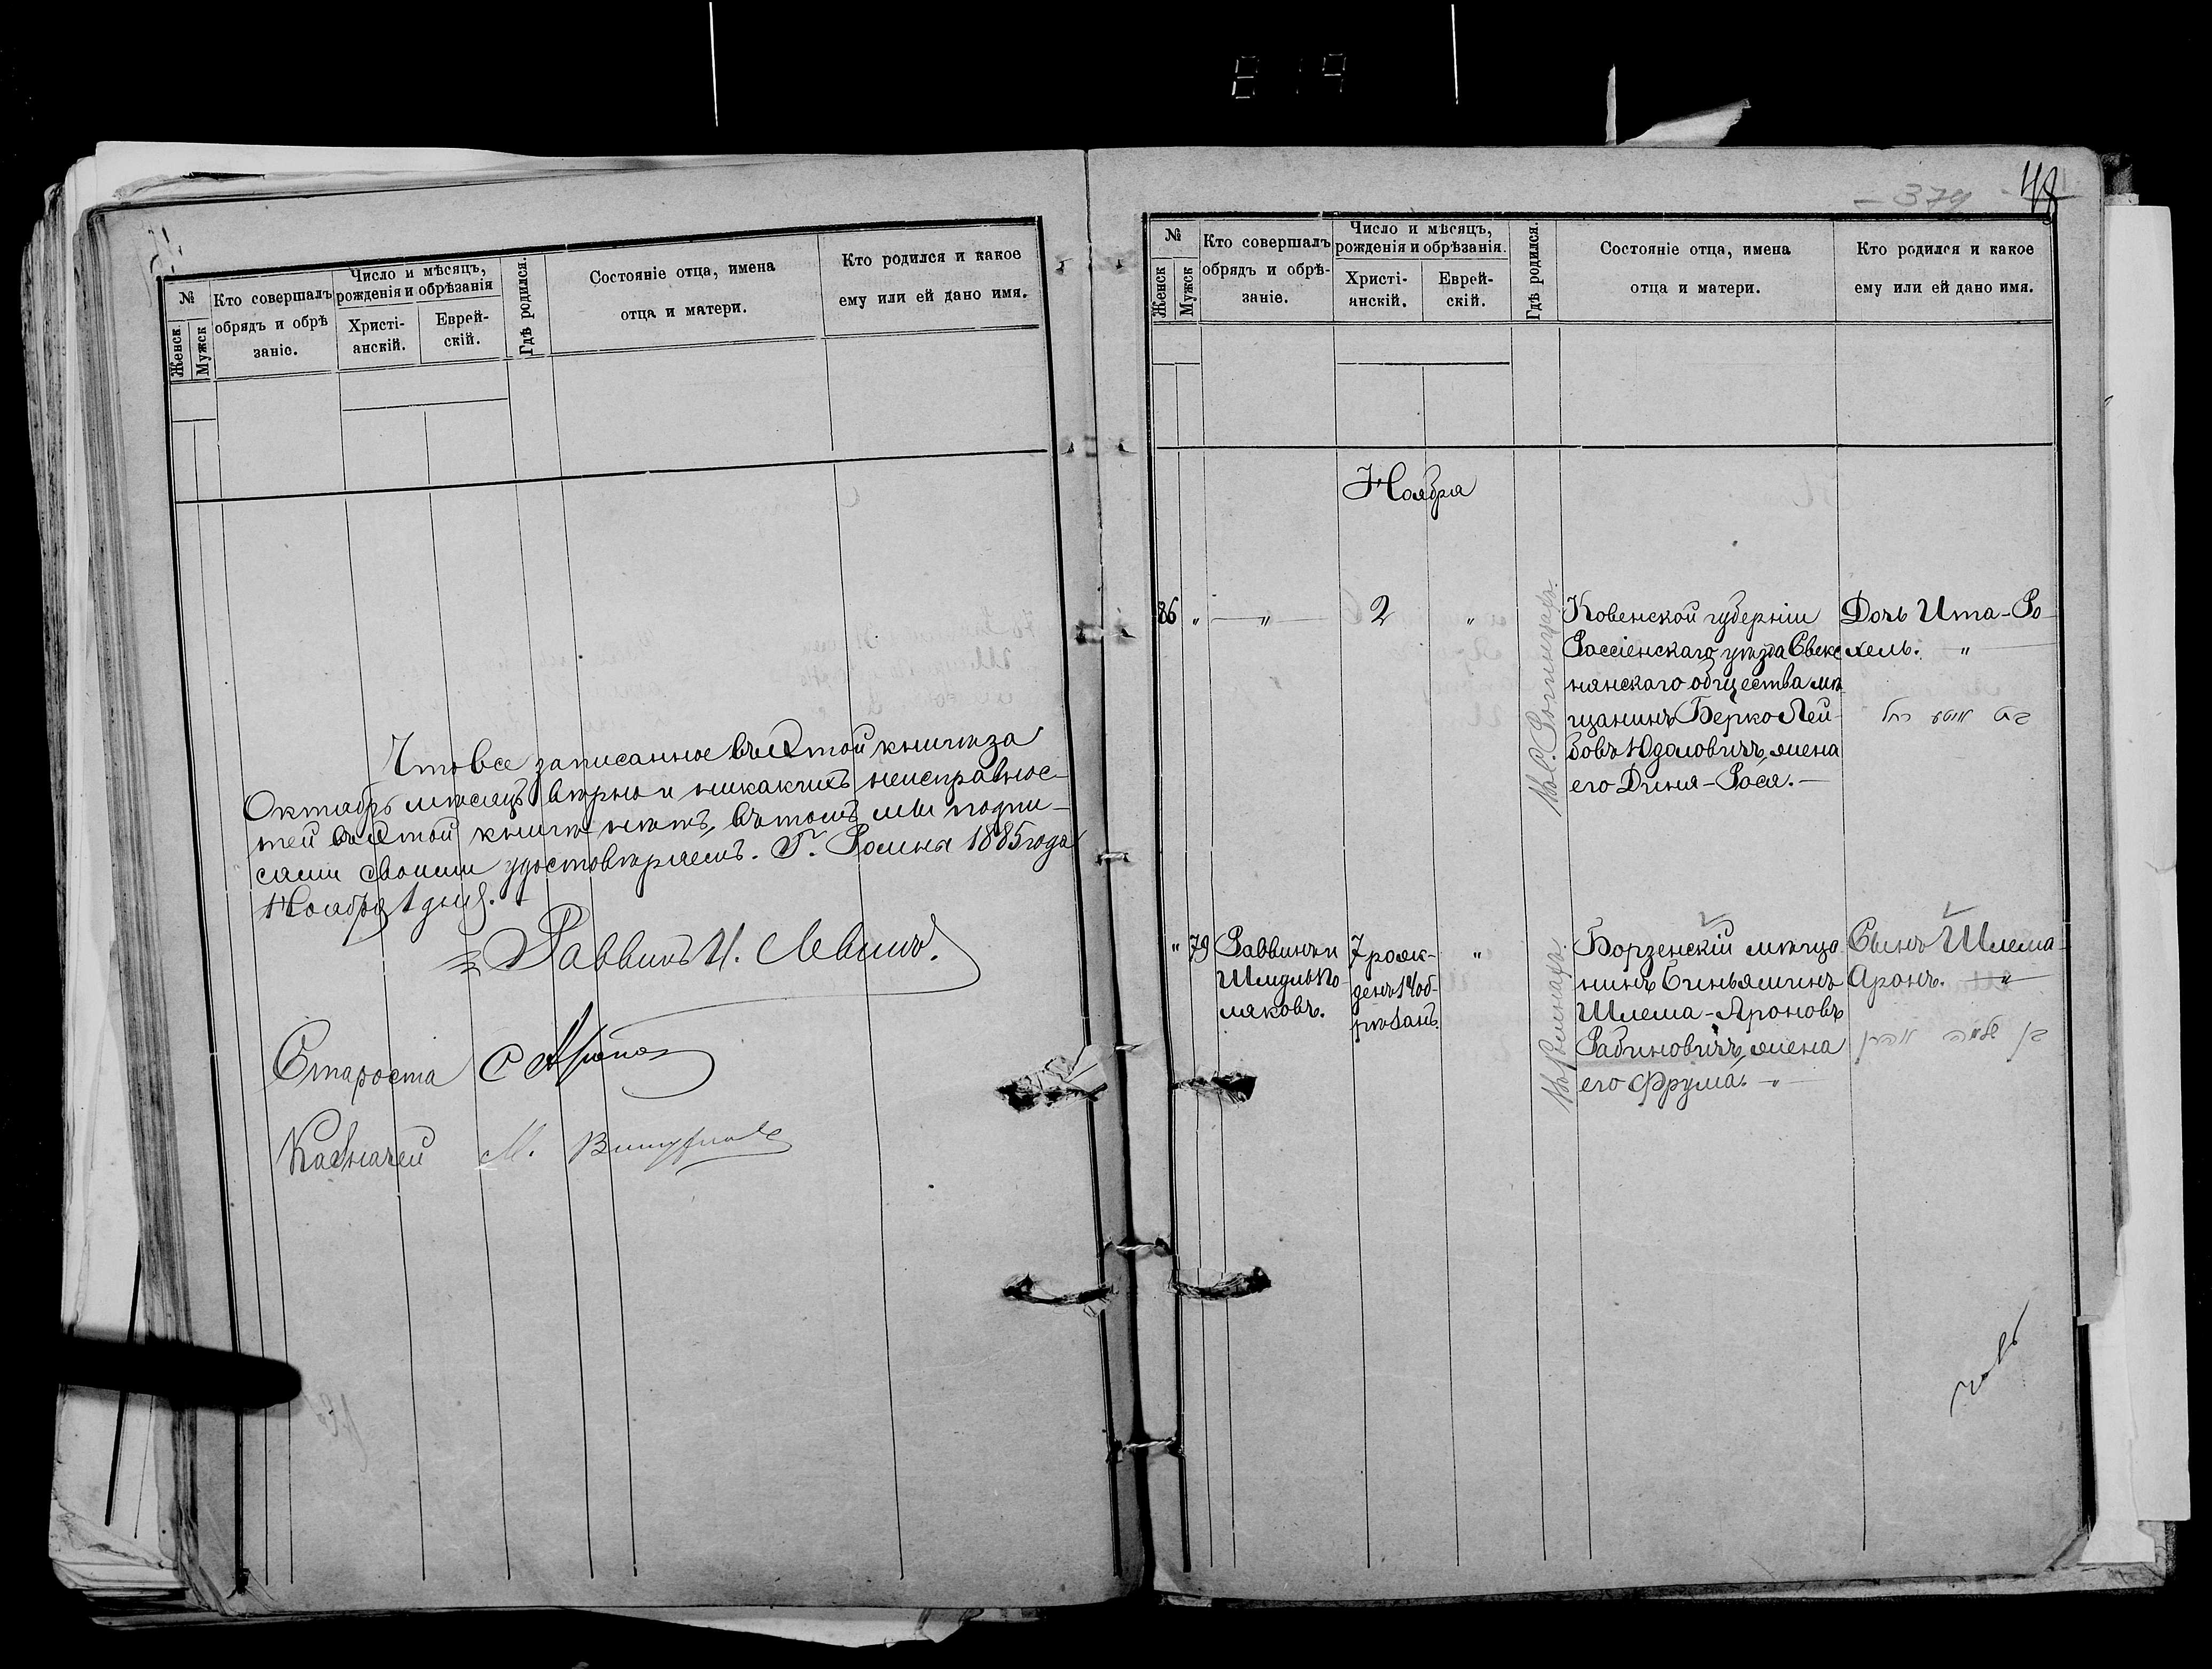 819
№
Женск.
Мужск
Кто совершалъ
обрядъ и обрѣ
заніе.
Число и мѣсяцъ,
рожденія и обрѣзанія
Христі-
анскій.
Еврей-
скій.
Гдѣ родился.
Состояніе отца, имена
отца и матери.
Кто родился и какое
ему или ей дано имя.
Что все записанное въ этой книгѣ за
Октябрь мѣсяцъ вѣрно и никакихъ неисправнос-
тей въ этой книгѣ нѣтъ, въ томъ мы подпи-
сями своими удостовѣряемъ. Г. Ромны 1885 года
Ноября 1 дня.
Раввинъ И. Левинъ.
Староста С
Казначей М.
- 379
48
№
Женск
Мужск
Кто совершалъ
обрядъ и обрѣ-
заніе.
Число и мѣсяцъ,
рожденія и обрѣзанія.
Христі-
анскій.
Еврей-
скій.
Гдѣ родился.
Состояніе отца, имена
отца и матери.
Кто родился и какое
ему или ей дано имя.
Ноября
86 " — " — 2 "
Ковенской губерніи
Россіенскаго уѣзда Свекс
нянскаго общества мѣ
щанинъ Берко Лей-
бовъ Юдоловичъ, жена
его Диня-Рося. —
Дочь Ита-Ро
хель. "
בת איטע רחל
" 79
Раввинъ и
Шмуль По
ляковъ.
7 рож-
денъ 14 об-
рѣзанъ.
"
Въ Ромнахъ.
Борзенскій мѣща
нинъ Биньяминъ
Шлема-Ароновъ
Рабиновичъ, жена
его Фрума. — " —
Сынъ Шлема-
Аронъ. — " —
בן שלמה אהרן